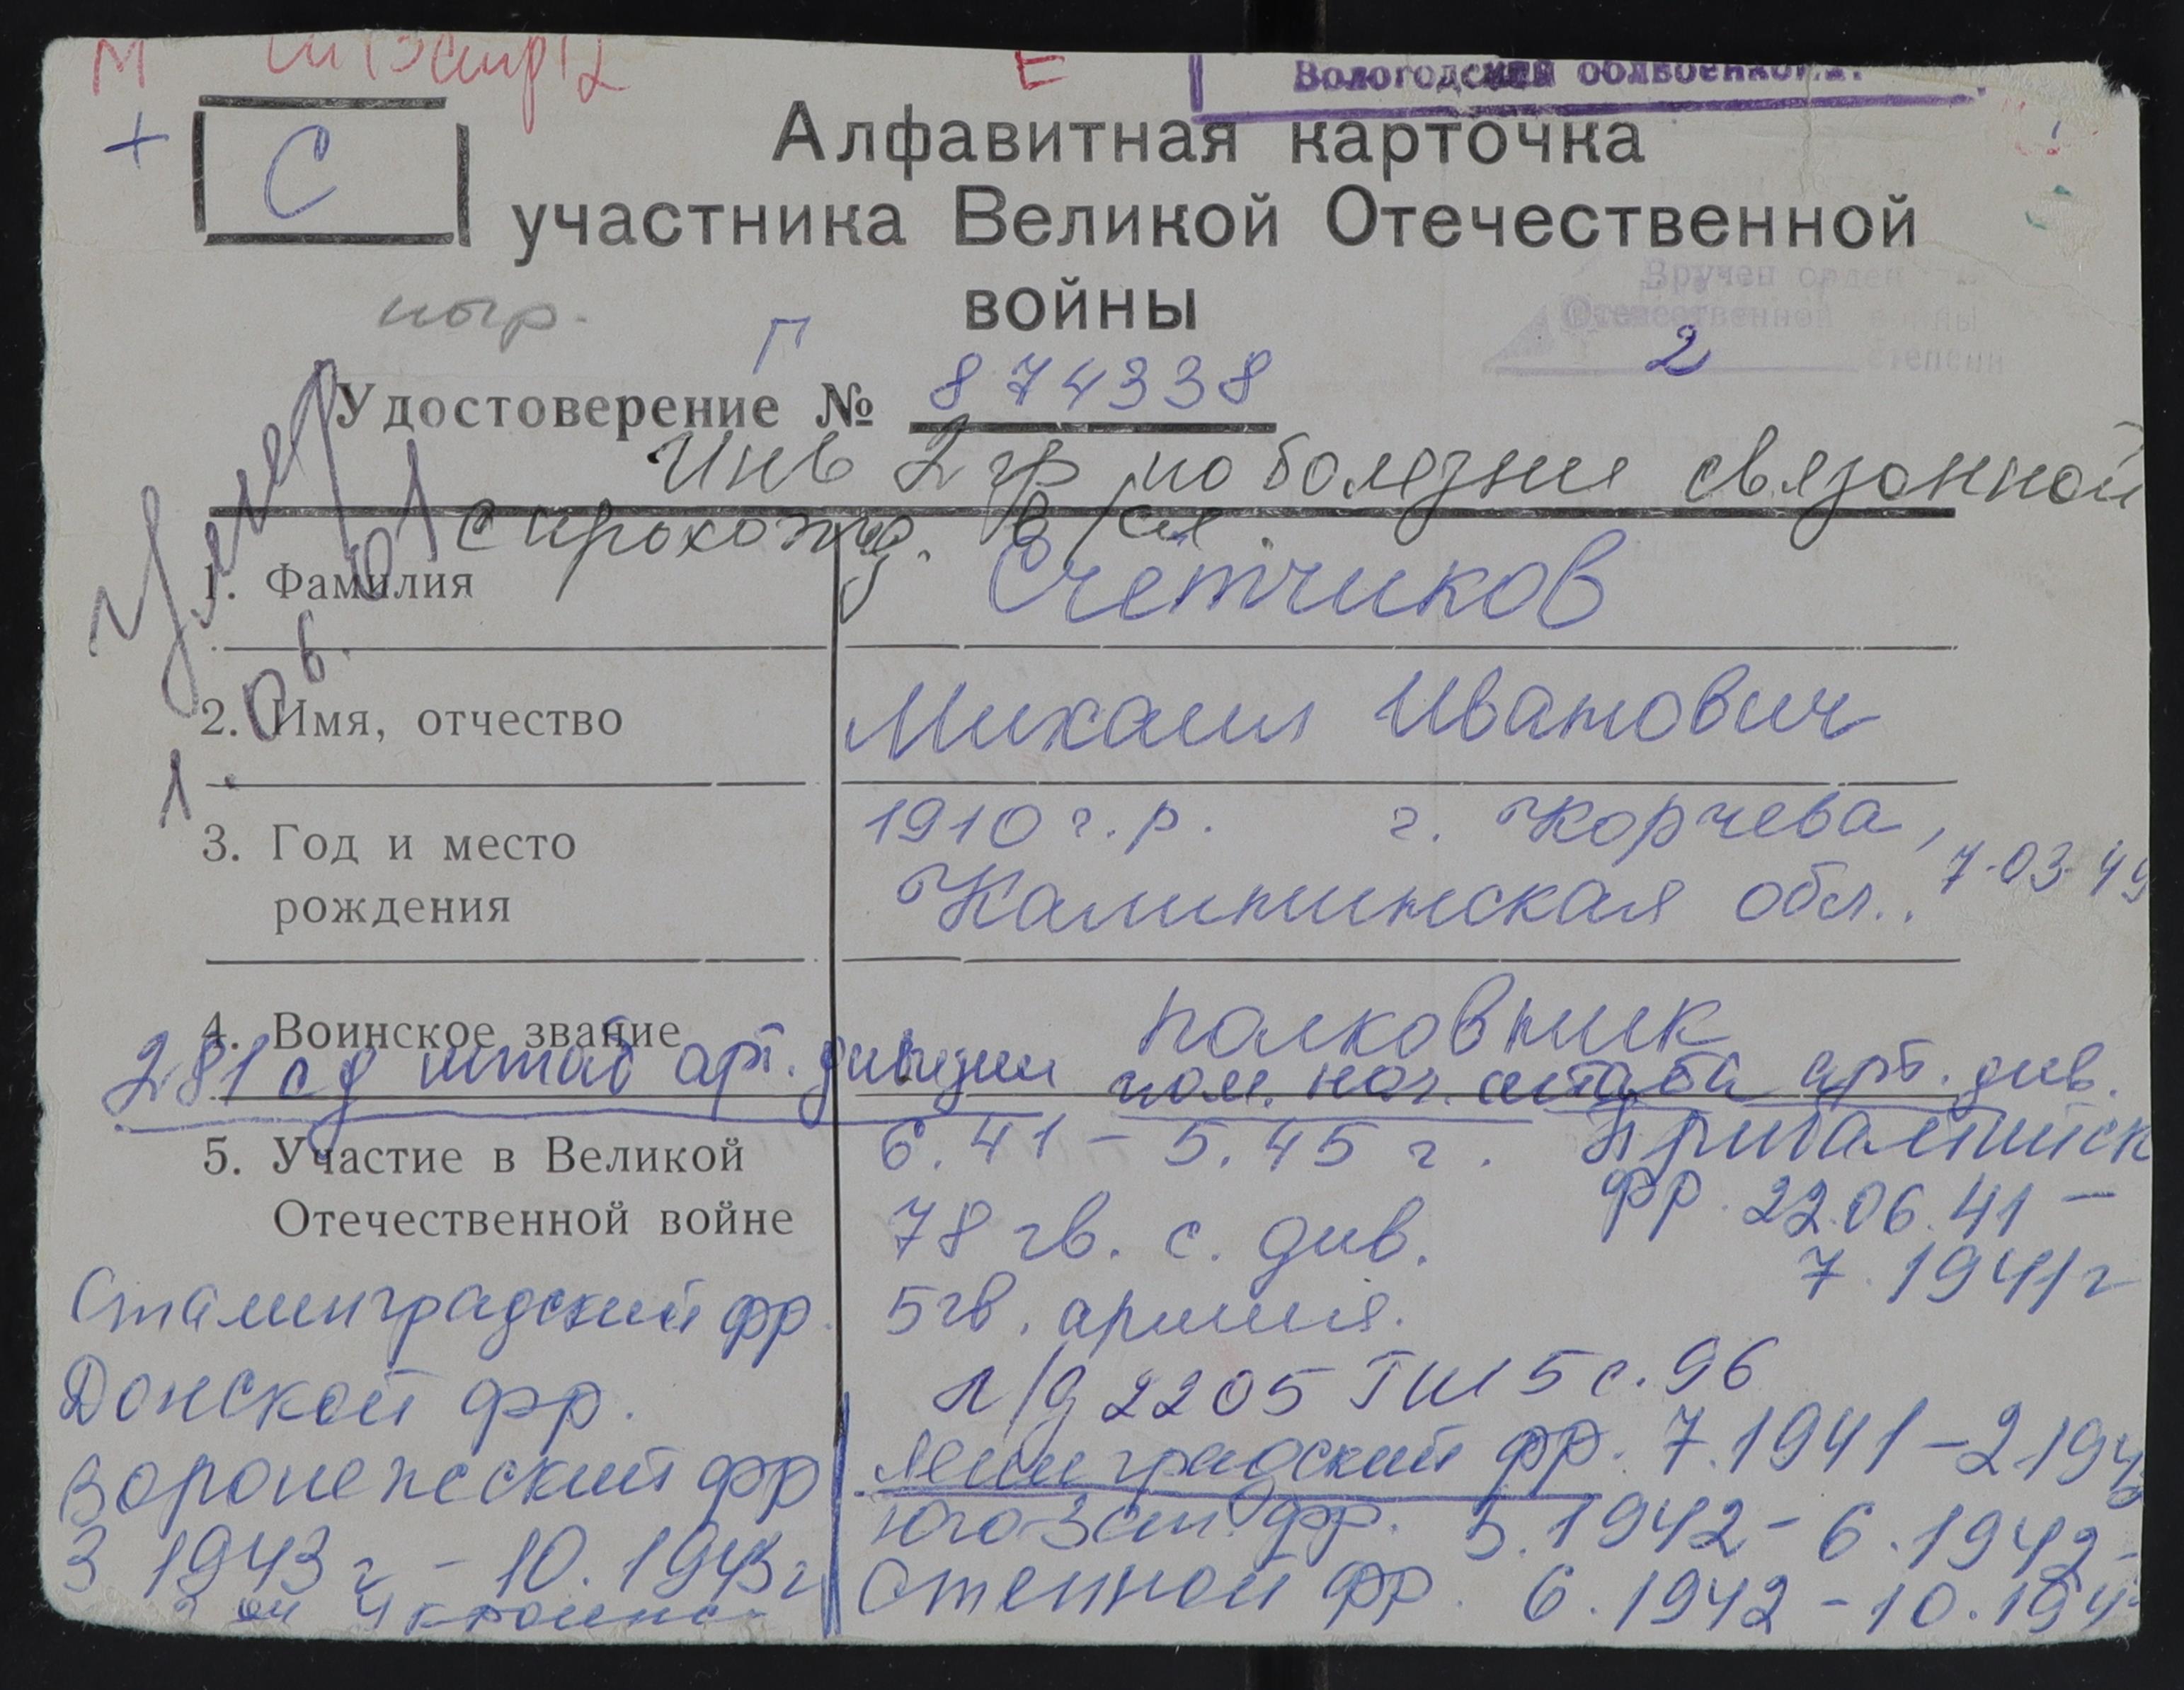 М
Е
Вологодский облвоенкомат
+ С
Алфавитная карточка
участника Великой Отечественной
войны
Вручен орден
Отечественной войны
2 степени
Г
Удостоверение № 874338
Инв 2 гр по болезни связанной
с прохожд. в/сл.
Умер
1. 06. 01
1. Фамилия Счётчиков
2. Имя, отчество Михаил Иванович
3. Год и место 1910 г.р. г. Корчева,
рождения Калининская обл.. 7-03-49
4. Воинское звание полковник
281 сд штаб арт. дивизии пом. нач. штаба арт. див.
5. Участие в Великой 6.41 - 5.45 г. Прибалтийск
Отечественной войне 78 гв. с. див. фр. 22.06.41 -
7.1941 г
Сталинградский фр. 5 гв. армия.
Донской фр. л/д 2205 ГШ 5 с. 96
Воронежский фр Ленинградский фр. 7.1941 - 2 194
3 1943 г - 10. 1943 г Юго-Зап. фр. 5.1942 - 6.1942 -
Степной фр. 6.1942 - 10.194